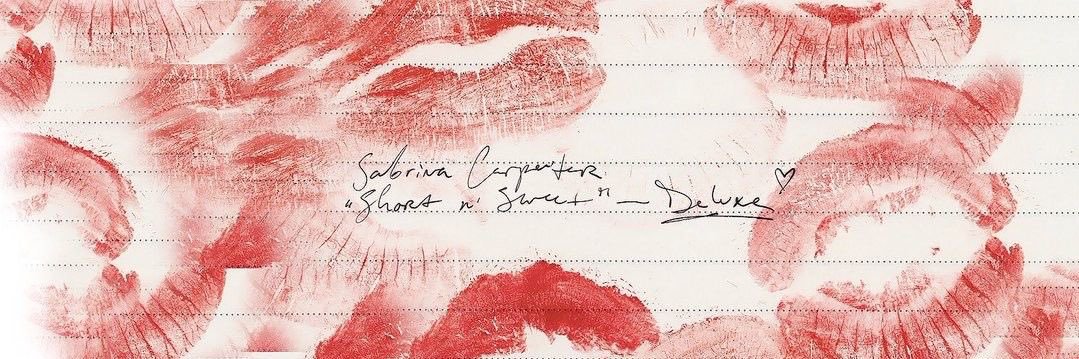 Sabrina Carpenter
"Short n' Sweet" – Deluxe ♡